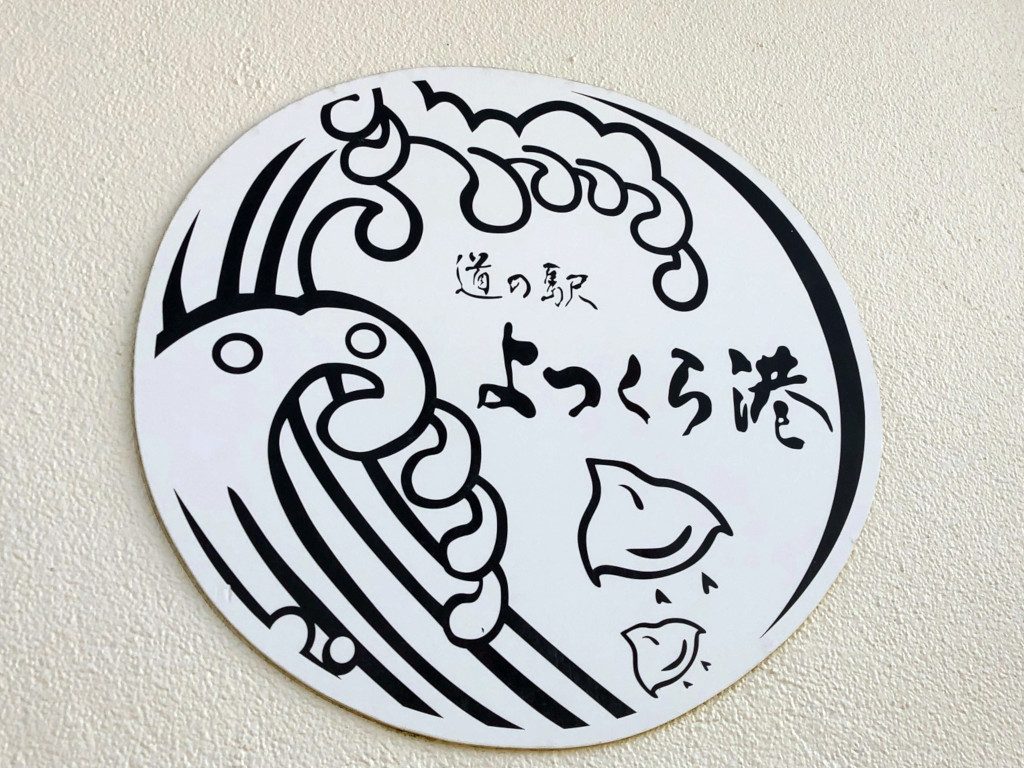 道の駅
よつくら港